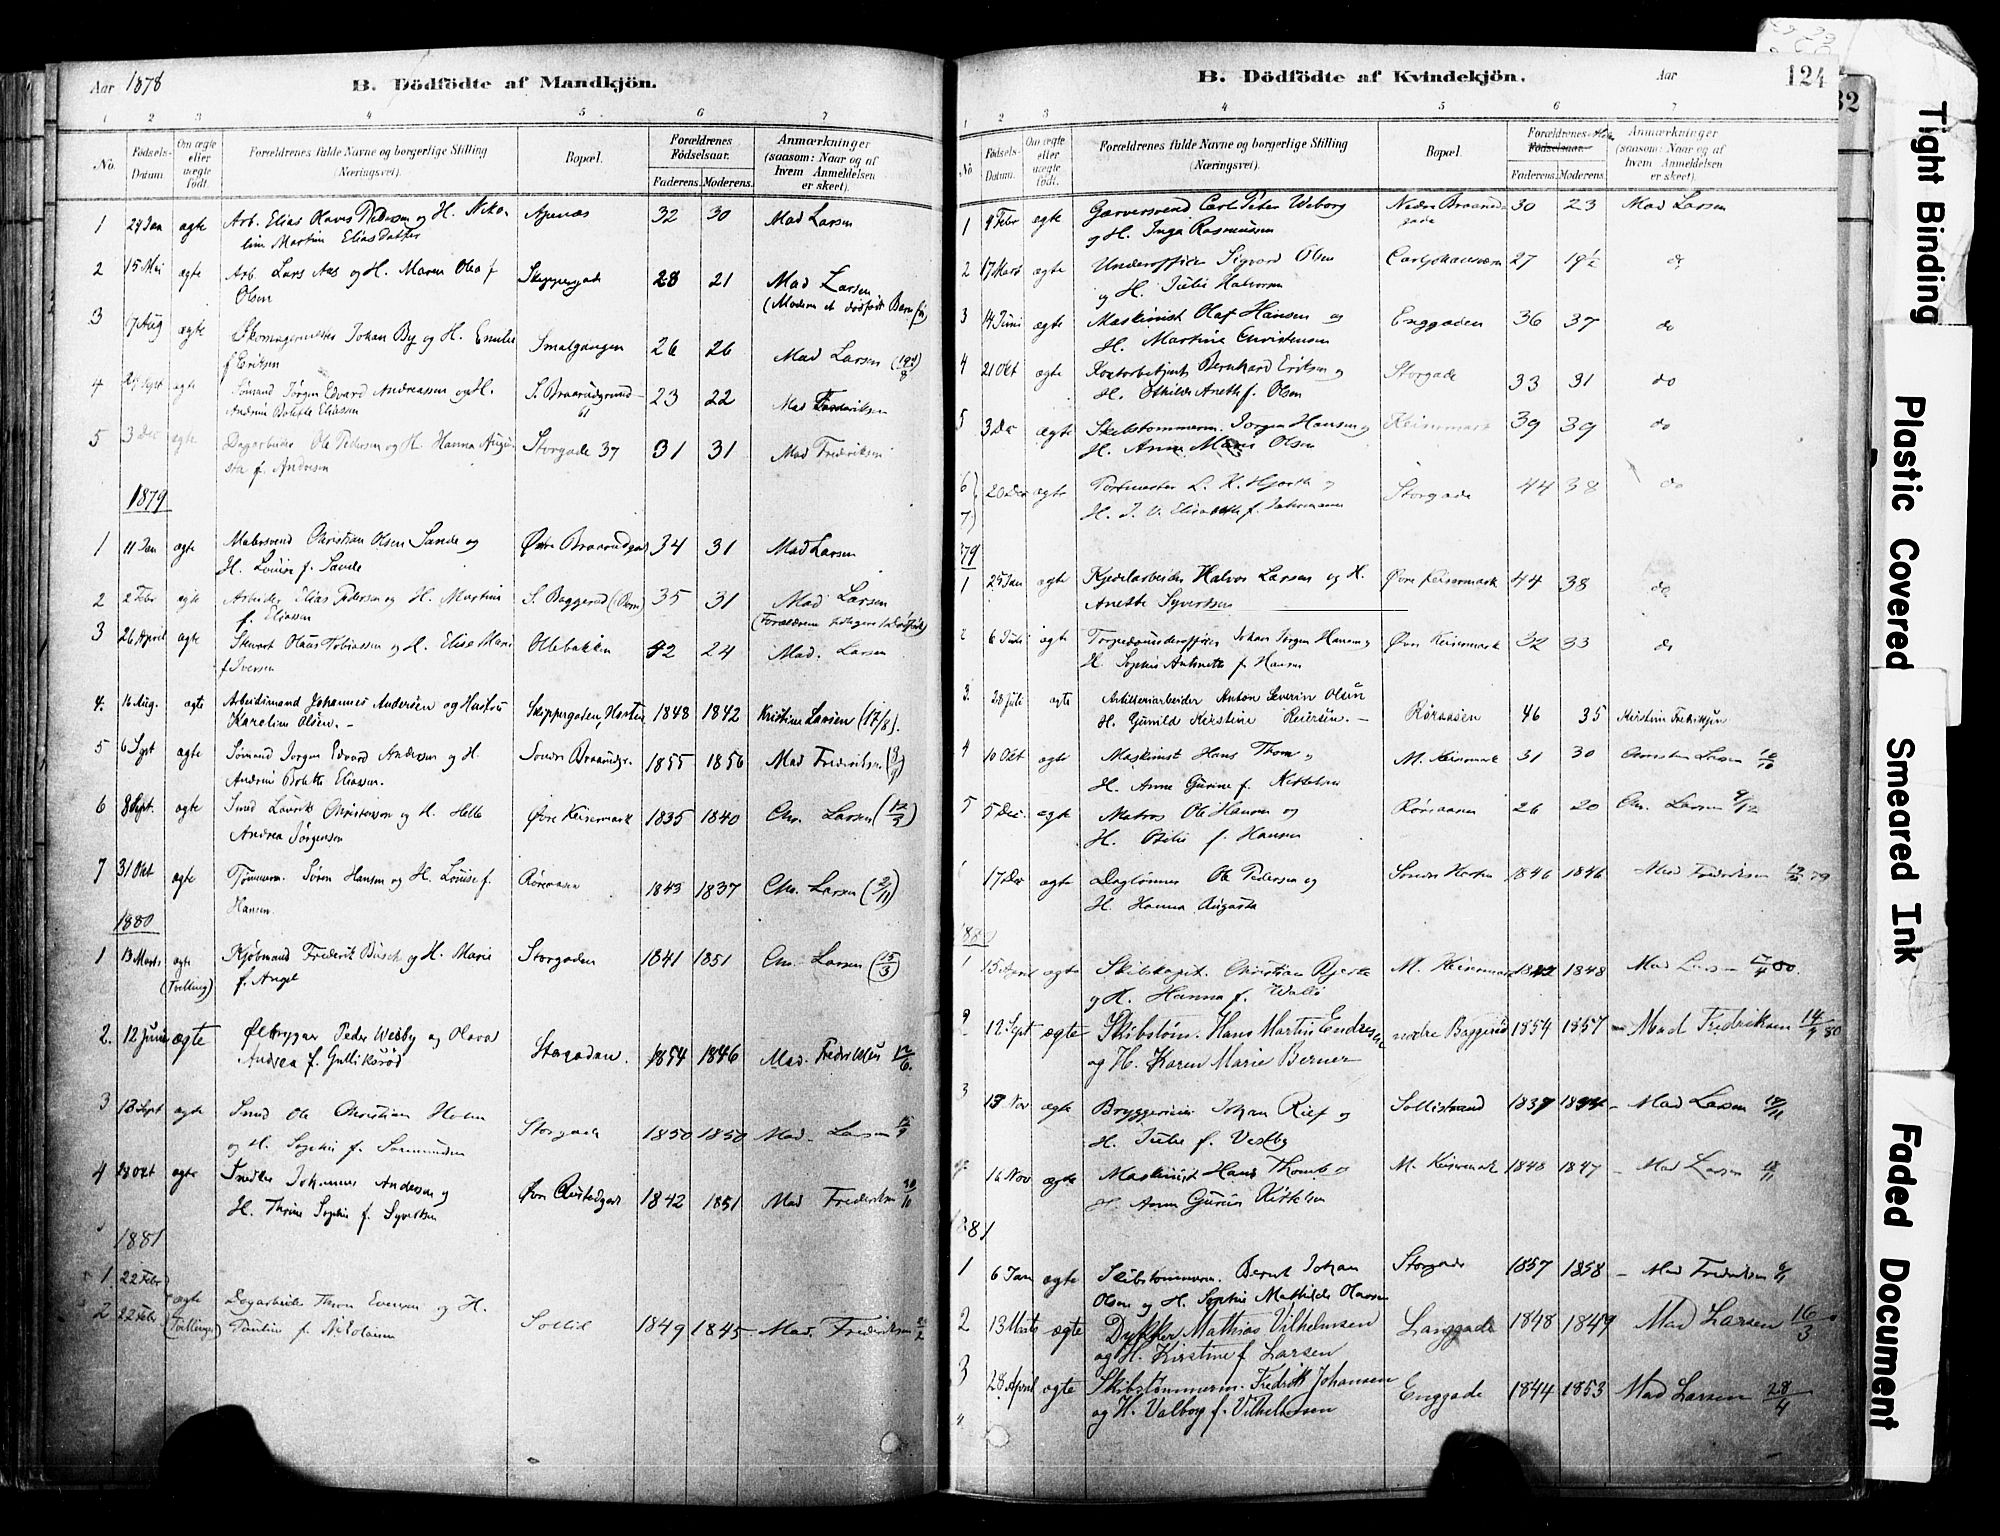 Aar 1878
B. Dödfödte af Mandkjön.
1 2 3 4 5 6 7
No. Födsels-Datum. Om ægte eller uægte födt. Forældrenes fulde Navne og borgerlige Stilling (Næringsvei). Bopæl. Forældrenes Födselsaar. Faderens. Moderens. Anmærkninger (saasom: Naar og af hvem Anmeldelsen er skeet).
1 29 Jan ægte Arb. Elias Olaves Pedersen og H. Niko- 32 30 Mad Larsen
line Martine Eliasdatter
2 15 Mai ægte Arb. Lars Aas og H. Maren Olea f Skippergade 28 21 Mad Larsen
Olsen (Moderen et dødfødt Barn før)
3 7 Aug ægte Skomagermester Johan By og H. Emilie Smalgangen 26 26 Mad Larsen
f Eriksen
4 ægte Sömand Jörgen Edvard Andreassen og H. S. Braarudgrund 23 22 Mad Frederiksen
Andrine Bolette Eliassen 61
5 3 Dec ægte Dagarbeider Ole Pedersen og H. Hanna Augu- Storgade 37 31 31 Mad Frederiksen
sta f. Andersen
1879
1 11 Jan ægte Malersvend Christian Olsen Sande og Øvre Braarudgad 34 31 Mad Larsen
H. Louise f. Sande
2 2 Febr ægte Arbeider Elias Pedersen og H. Martine S. Baggerød (Born) 35 31 Mad Larsen
f. Eliassen
3 26 April ægte Stuert Olaus Tobiassen og H. Elise Marie Ollebakken 42 24 Mad. Larsen
f Iversen
4. 16 Aug. ægte Arbeidsmand Johannes Andersen og Hustru Skippergaden, Horten 1848 1842 Kristine Larsen (17/8).
Karoline Olsen. –
5 6 Sept ægte Sömand Jörgen Edvard Andersen og H. Sondre Braarudgr. 1855 1856 Mad Frederiksen
Andrine Bolette Eliassen.
6 8 Sept. ægte Smed Lauritz Christensen og H. Helle Øvre Keisemark 1835 1840 Chr. Larsen
Andrea Jörgensen
7 31 Okt ægte Tömmerm. Sören Hansen og H. Louise f. Røreaasen 1843 1837 Chr. Larsen (2/11)
Hansen.
1880
1 13 Marts ægte (Tvilling) Kjöbmand Frederik Busch og H. Marie Storgaden 1841 1851 Chr. Larsen (15/3)
f. Angel
2. 12 Juni ægte Ølbrygger Peder Wesby og Olava Storgaden. 1854 1846 Mad. Fredriksen 12/6.
Andrea f. Gulliksrød
3 13 Sept ægte Smed Ole Christian Holm Storgade 1850 1850 Mad. Larsen
og H. Sophie f. Soremunden
4 28 Okt ægte Snedker Johannes Andersen og 1842 1851 Mad Frederiksen
H. Thrine Sophie f. Syvertsen
1881
1 22 Febr
2 22 Feb ægte (Tvillinger) Dagarbeider Thron Evensen og H. Sollid 1849 1845 Mad. Frederiksen
Pauline f. Nikolaisen
124
B. Dödfödte af Kvindekjön.
Aar
1 2 3 4 5 6 7
No. Födsels-Datum. Om ægte eller uægte födt. Forældrenes fulde Navne og borgerlige Stilling (Næringsvei). Bopæl. Forældrenes Alder Födselsaar. Faderens. Moderens. Anmærkninger (saasom: Naar og af hvem Anmeldelsen er skeet).
1 9 Febr ægte Garversvend Carl Peter Weborg Nedre Braarud- 30 23 Mad Larsen
og H. Inga Rasmussen gade
2 17 Mars ægte Underofficer Sigvard Olsen Carljohansværn 27 19½ do
og H. Julie Halvorsen
3 14 Juni ægte Maskinist Olaf Hansen og Enggaden 36 37 do
H. Martine Christensen
4 21 Okt ægte Kontorbetjent Bernhard Eriksen og Storgade 33 31 do
H. Othilde Aneth f. Olsen
5 3 Dec ægte Skibstømmerm. Jørgen Hansen og Keisemark 39 39 do
H. Anne Marie Olsen
6 7) 20 Dec ægte Postmester L. K. Hjorth og Storgade 44 38 do
H. J. V. Elisabeth f. Johannesen
79
1 25 Jan ægte Kjedelarbeider Halvor Larsen og H. Øvre Keisermark 44 38 do
Anette Syvertsen
2 6 Juli ægte Torpedounderofficer Johan Jørgen Hansen og Øvre Keisemark 32 33 do
H. Sophie Antonette f. Hansen
3. 28 Juli ægte Artilleriarbeider Anton Severin Olsen
H. Gunild Kirstine Reiersen. – Røraasen 46 35 Kirstine Fredriksen
4 10 Okt ægte Maskinist Hans Thom og M. Keisemark 31 30 Christen Larsen
H. Anne Gurine f. Kittelsen
5 5 Dec. ægte Matros Ole Hansen og Røreaasen 26 20 Chr. Larsen 9/12
H. Otilie f. Hansen
17 Dec ægte Daglönner Ole Pedersen og Sondre Horten 1846 1846 Mad Frederiksen 79
H. Hanna Augusta
1 15 April ægte Skibskapt. Christian Bjerke M. Keisemark 1848 Mad Larsen 17/4 80.
og H. Hanna f. Wallö
2 12 Sept ægte Skibstöm. Hans Martin Endresen nedre Baggerød 1854 1857 Mad Fredriksen 14/9 80
og H. Karen Marie Berner
3 13 Nov ægte Bryggerieier Johan Rief og Sollistrand 1837 Mad Larsen
H. Julie f. Vestby
16 Nov ægte Maskinist Hans Thomb og M. Keisemark 1848 1847 Mad Larsen 18/11
H. Anne Gurine Kittelsen
1881
1 6 Jan ægte Skibstommerm. Bernt Johan Storgade 1857 1858 – Mad Fredriksen
Olsen og H. Sophie Mathilde Olausen
2 13 Marts ægte Dykker Mathias Vilhelmsen Langgade 1848 1849 Mad Larsen 16/3
og H. Kirstine f Larsen
3 28 April ægte Skibstömmerm. Fredrik Johansen Enggade 1844 1853 Mad Larsen 28/4
og H. Valborg f. Vilhelmsen
Tight Binding
Plastic Covered
Smeared Ink
Faded Document